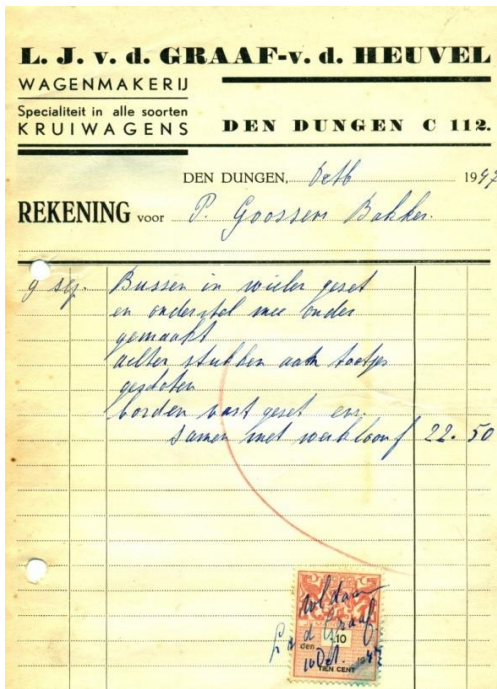 L. J. v. d. GRAAF-v. d. HEUVEL
WAGENMAKERIJ
Specialiteit in alle soorten
KRUIWAGENS
DEN DUNGEN C 112.
DEN DUNGEN, 1947
REKENING voor P. Goossens Bakker.
9 Bussen in wielen geset
en onderstel onder
gemaakt
achter stukken
gesloten
borden vast geset en
samen met werkloon f 22.50
voldaan
d Graaf
den 10
10 Oct. 1947
TIEN CENT